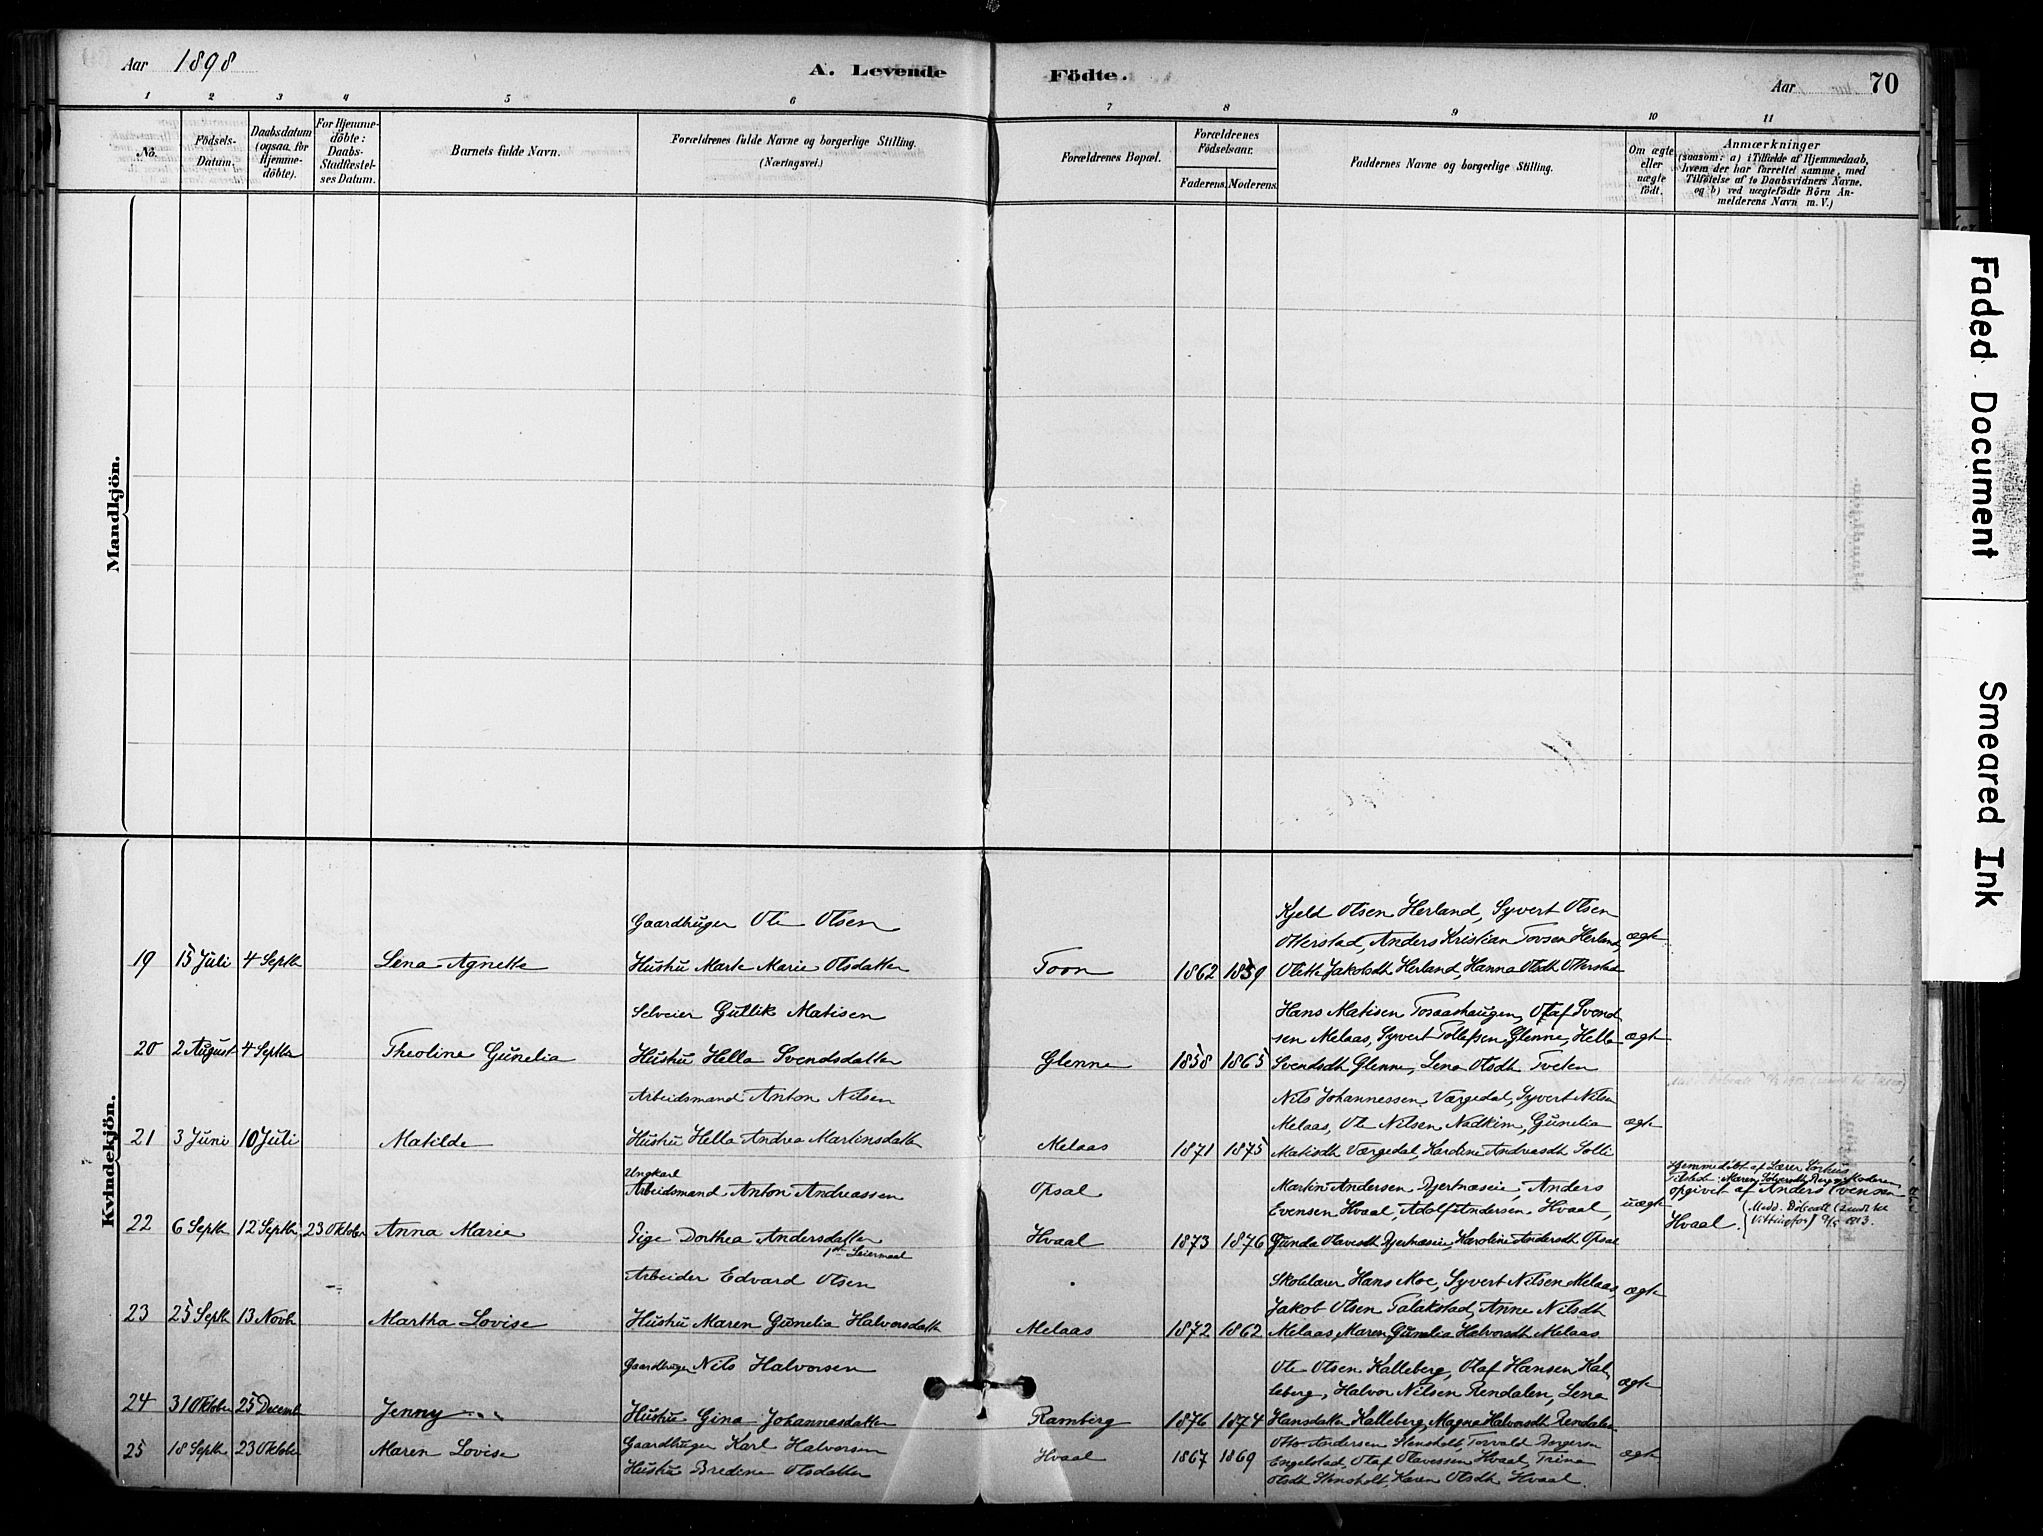 Aar 1898
A. Levende Födte.
Aar
70
1 2 3 4 5 6 7 8 9 10 11
No.
Födsels-Datum.
Daabsdatum (ogsaa for Hjemme-döbte).
For Hjemme-döbte: Daabs-Stadfæstel-ses Datum.
Barnets fulde Navn.
Forældrenes fulde Navne og borgerlige Stilling. (Næringsvei.)
Forældrenes Bopæl.
Forældrenes Födselsaar.
Faderens. Moderens.
Faddernes Navne og borgerlige Stilling.
Om ægte eller uægte födt.
Anmærkninger
(saasom: a) i Tilfælde af Hjemmedaab,
hvem der har forrettet samme, med
Tilföielse af to Daabsvidners Navne.
og b) ved uægtefödte Börn An-
melderens Navn m. V.)
Mandkjön.
Kvindekjön.
Gaardbruger Ole Olsen
Kjeld Olsen Herland, Syvert Olsen
Otterstad, Anders Kristian Tovsen Herland, ægte
19 15 Juli 4 Septb Lena Agnette Hustru Marte Marie Olsdatter Toon 1862 1859 Olette Jakobsdt Herland, Hanna Olsdt Otterstad
Selveier Gullik Matisen
Hans Matisen Tosaashaugen, Olaf Svend
sen Melaas, Syvert Tollefsen Glenne, Hella ægte
20 2 August 4 Septbr Theoline Gunelia Hustru Hella Svendsdatter Glenne 1858 1865 Svendsdt Glenne, Lena Olsdt Tveten
Arbeidsmand Anton Nilsen
Nils Johannessen Værgedal, Syvert Nilsen
Melaas, Ole Nilsen Nadkim, Gunelia ægte
21 3 Juni 10 Juli Matilde Hustru Hella Andrea Martinsdatt Melaas 1871 1875 Matisdt Værgedal, Kardine Andreasdt Solli
Ungkarl
Arbeidsmand Anton Andreassen Opsal
Martin Andersen Bjertnæseie, Anders
Evensen Hvaal, Adolf Andersen Hvaal, uægte
22 6 Septb 12 Septb 23 Oktober Anna Marie Pige Dorthea Andersdatter Hvaal 1873 1876 Gunda Olavesdt Bjertnæseie, Karoline Andersdt Opsal
1ste Leiermaal
Hjemmedöbt af Lærer
opgivet af Anders Evensen
Hvaal.
1913.
Arbeider Edvard Olsen
Skolelærer Hans Moe, Syvert Nilsen Melaas, ægte
Jakob Olsen Talakstad, Anne Nilsdt
23 25 Septb 13 Novb Martha Lovise Hustru Maren Gunelia Halvorsdatt Melaas 1872 1862 Melaas, Maren Gunelia Halvorsdt Melaas
Gaardbruger Nils Halvorsen
Ole Olsen Kalleberg, Olaf Hansen Kal
leberg, Halvor Nilsen Rendalen, Lena ægte
24 31 Oktober 25 Decemb Jenny Hustru Gina Johannesdatter Ramberg 1876 1874 Hansdatter Kalleberg, Magna Halvorsdt Rendalen
Gaardbruger Karl Halvorsen
Otto Andersen Stensholt, Torvald Borgersen
25 18 Septb 23 Oktober Maren Lovise Hvaal 1867 1869 Engelstad, Olaf Olavessen Hvaal, Trina ægte
Hustru Bredine Olsdatter
Olsdt Stensholt, Karen Olsdt Hvaal
Faded Document
Smeared Ink